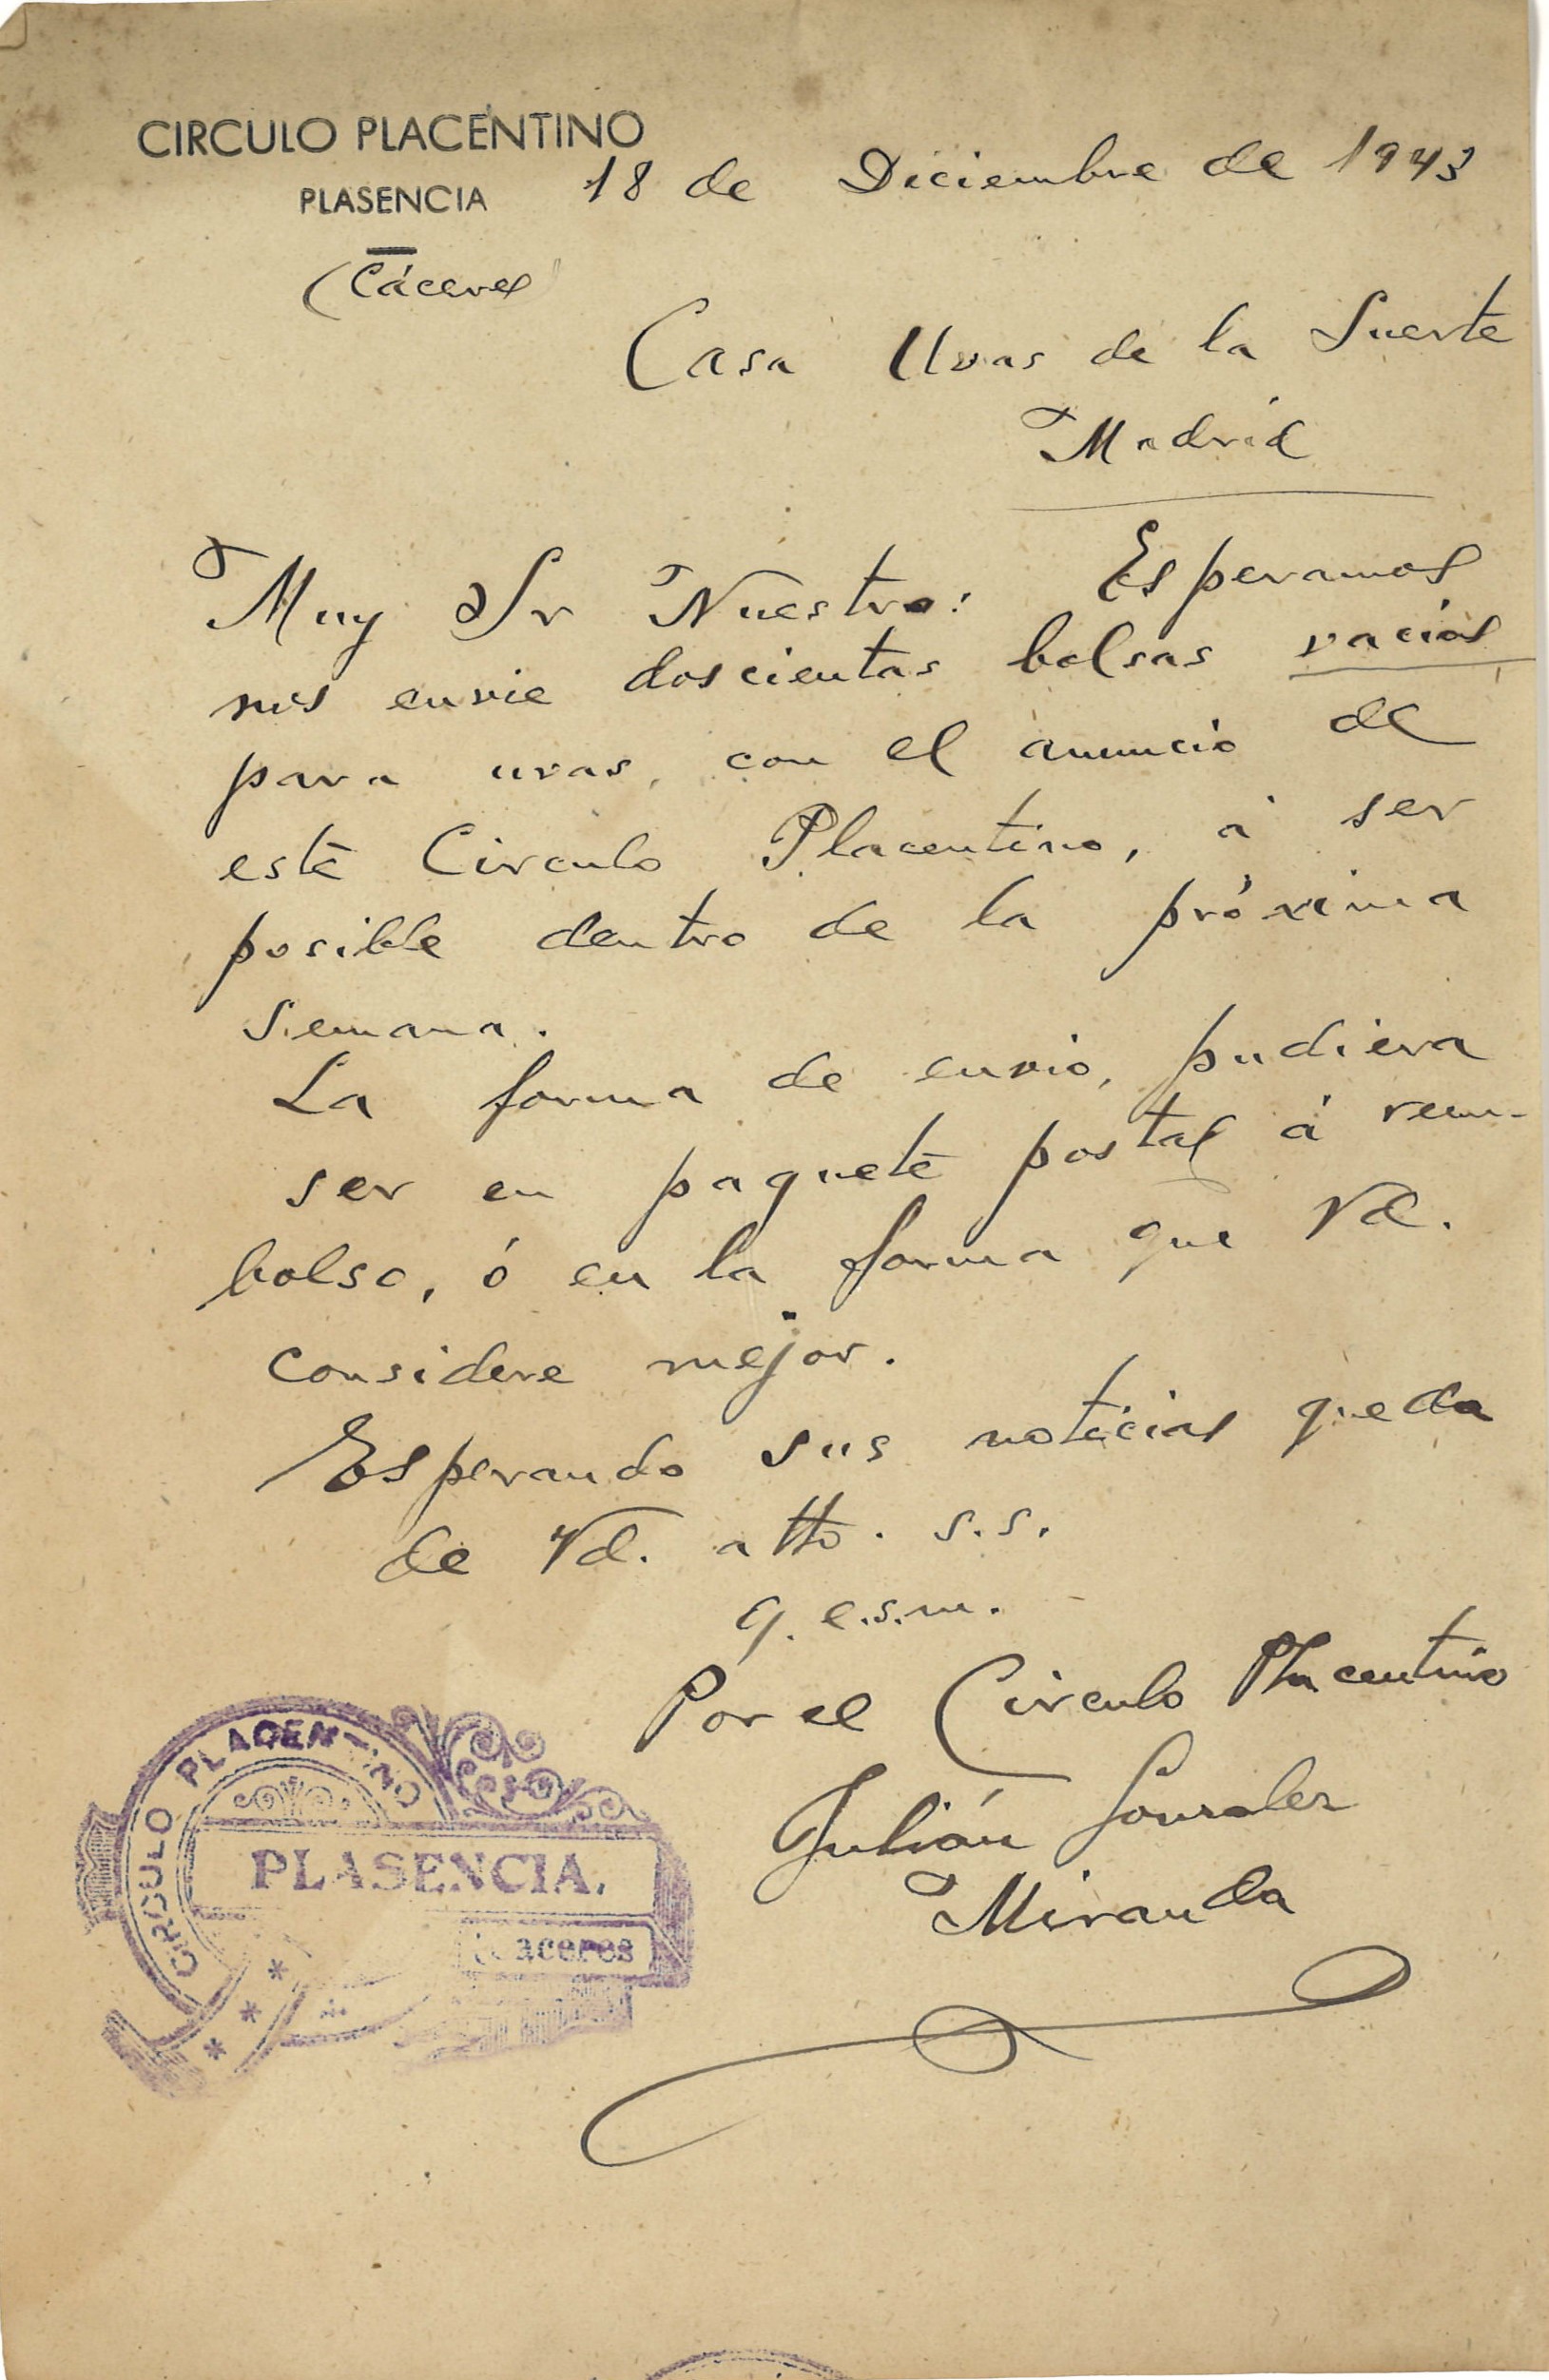 CIRCULO PLACENTINO
PLASENCIA
18 de Diciembre de 1943
(Cáceres)
Casa Uvas de la Suerte
Madrid
Muy Sr Nuestro: Esperamos
nos envie doscientas bolsas vacías
para uvas, con el anuncio de
este Circulo Placentino, á ser
posible dentro de la próxima
semana.
La forma de envio, pudiera
ser en paquete postal á reem-
bolso, ó en la forma que Vd.
considere mejor.
Esperando sus noticias queda
de Vd. atto. s.s.
q.e.s.m.
Por el Circulo Placentino
Julián Gonzalez
Miranda
CIRCULO PLACENTINO
PLASENCIA.
Caceres